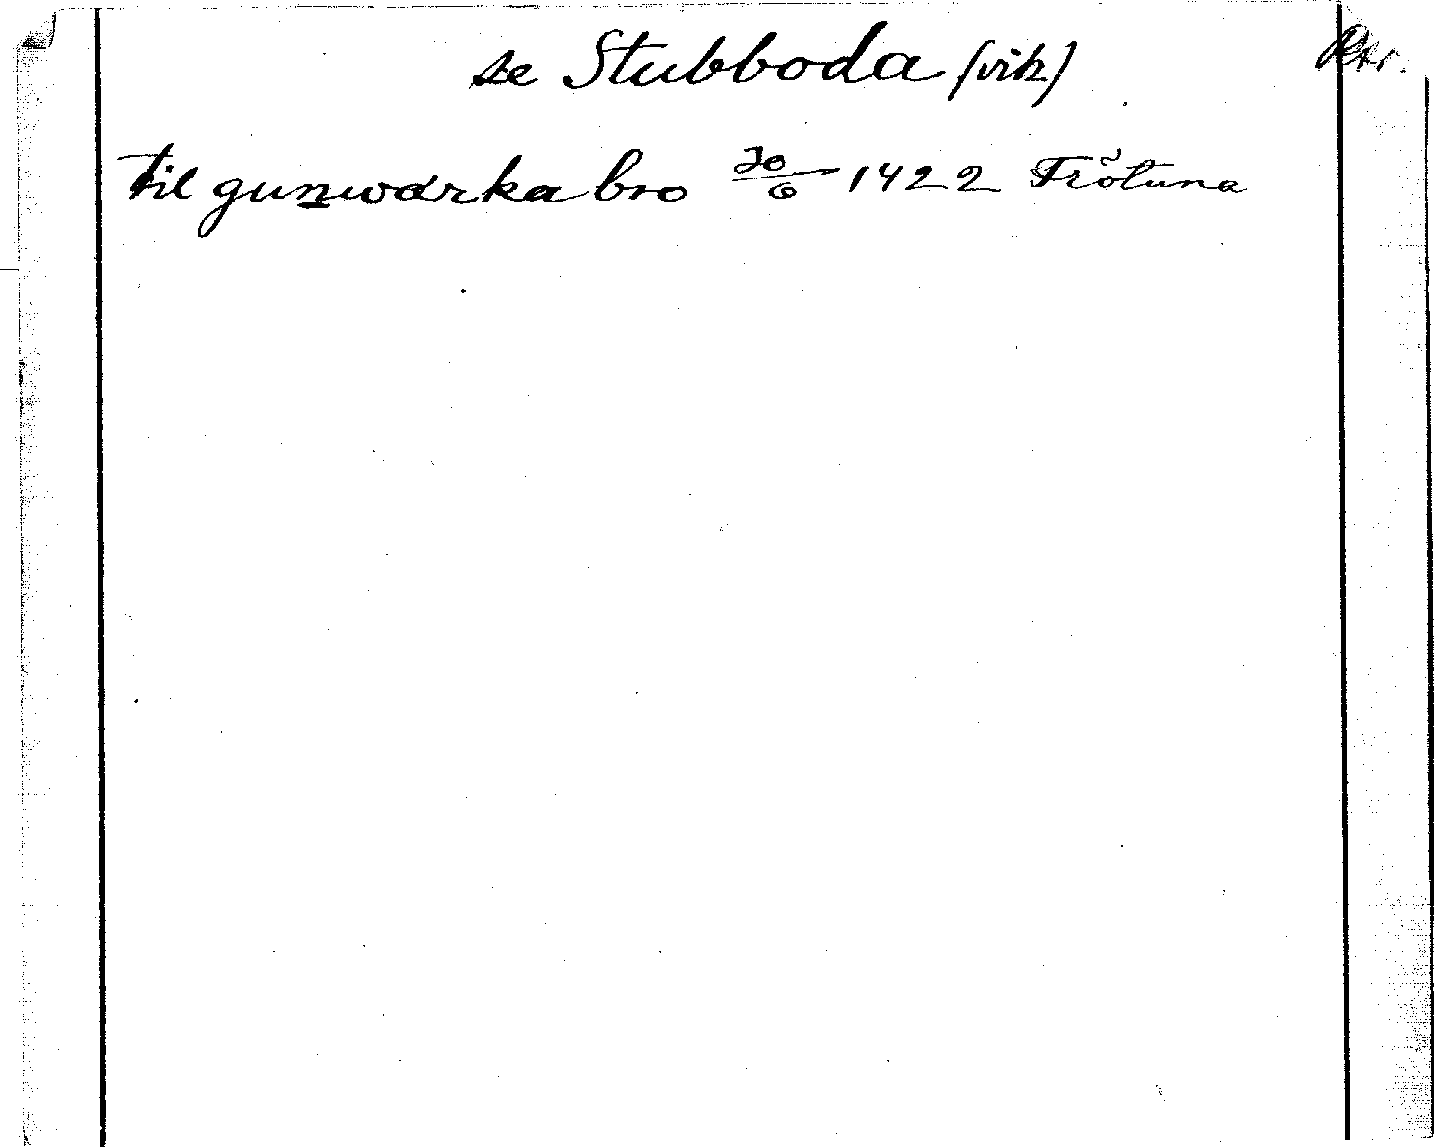 se Stubboda (vik)
til gunwarka bro 30/6 1422 Frötuna